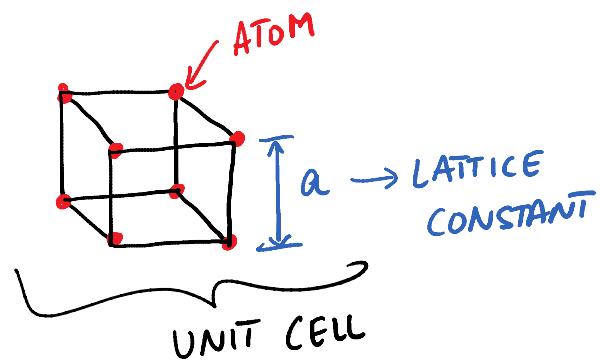 ATOM
a → LATTICE
CONSTANT
UNIT CELL